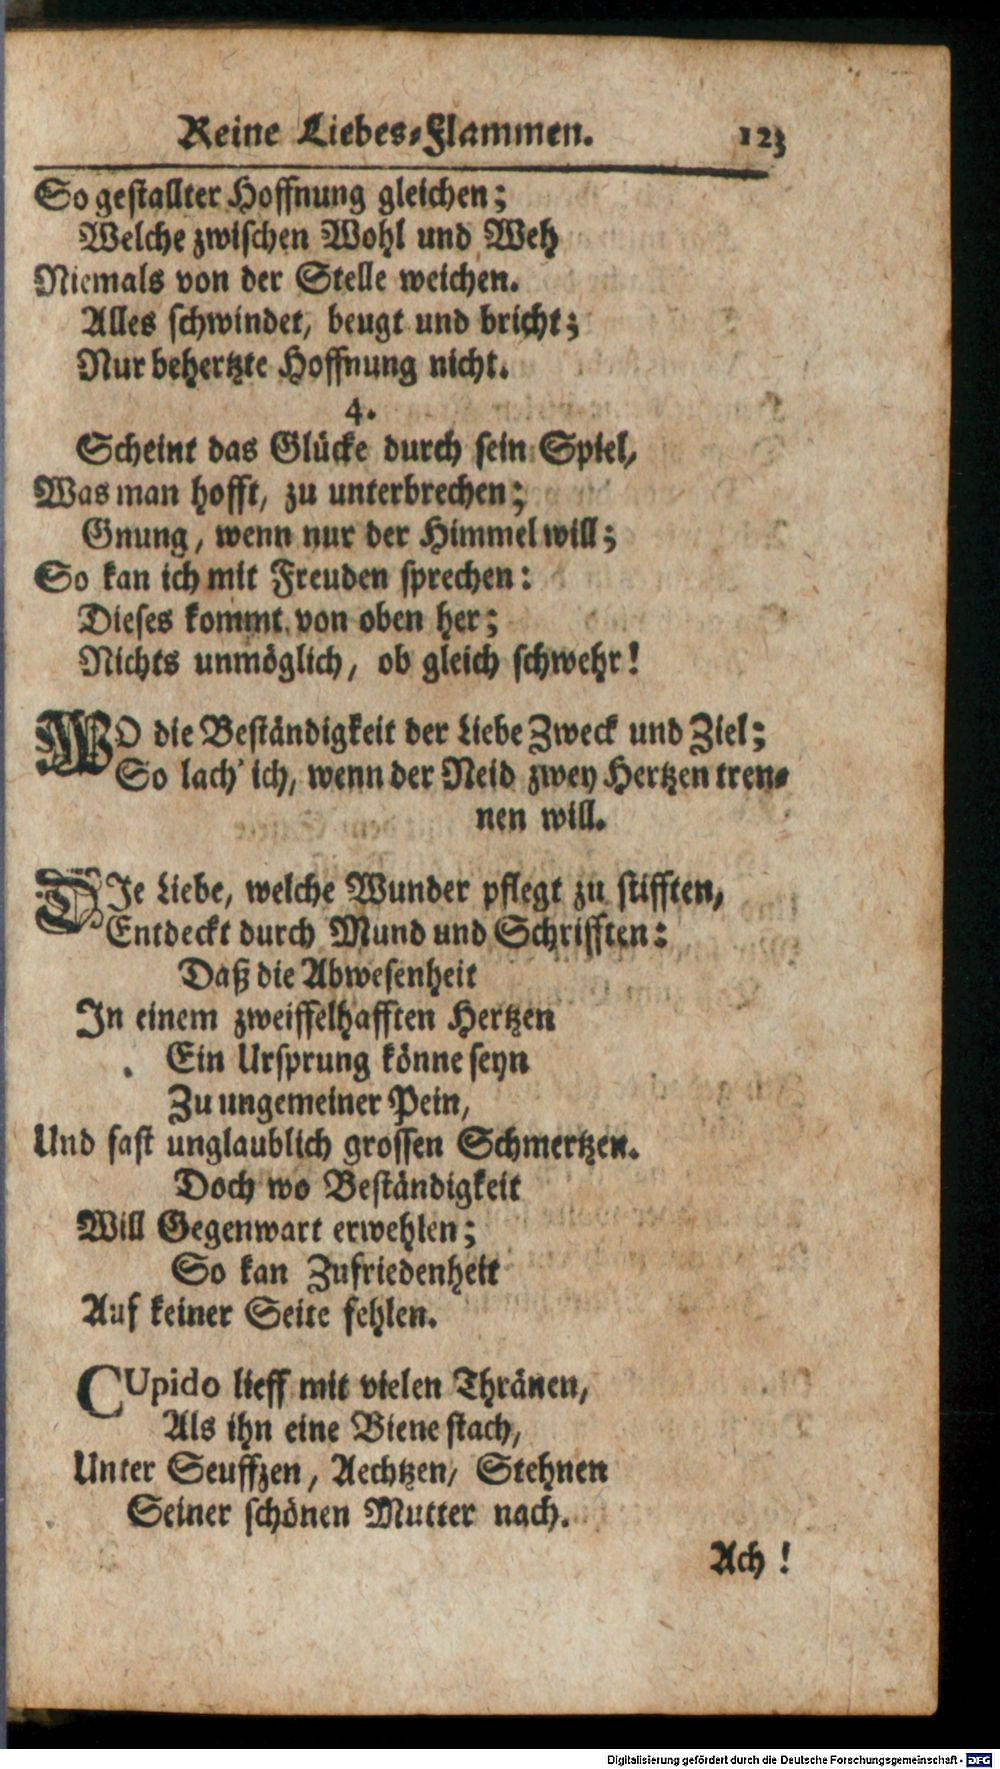 Reine Liebes-Flammen. 123
So gestallter Hoffnung gleichen;
Welche zwischen Wohl und Weh
Niemals von der Stelle weichen.
Alles schwindet, beugt und bricht;
Nur behertzte Hoffnung nicht.
4.
Scheint das Glücke durch sein Spiel,
Was man hofft, zu unterbrechen;
Gnung, wenn nur der Himmel will;
So kan ich mit Freuden sprechen:
Dieses kommt von oben her;
Nichts unmöglich, ob gleich schwehr!
WO die Beständigkeit der Liebe Zweck und Ziel;
So lach' ich, wenn der Neid zwey Hertzen tren-
nen will.
DIe Liebe, welche Wunder pflegt zu stifften,
Entdeckt durch Mund und Schrifften:
Daß die Abwesenheit
In einem zweiffelhafften Hertzen
Ein Ursprung könne seyn
Zu ungemeiner Pein,
Und fast unglaublich grossen Schmertzen.
Doch wo Beständigkeit
Will Gegenwart erwehlen;
So kan Zufriedenheit
Auf keiner Seite fehlen.
CUpido lieff mit vielen Thränen,
Als ihn eine Biene stach,
Unter Seuffzen, Aechtzen, Stehnen
Seiner schönen Mutter nach.
Ach !
Digitalisierung gefördert durch die Deutsche Forschungsgemeinschaft - DFG